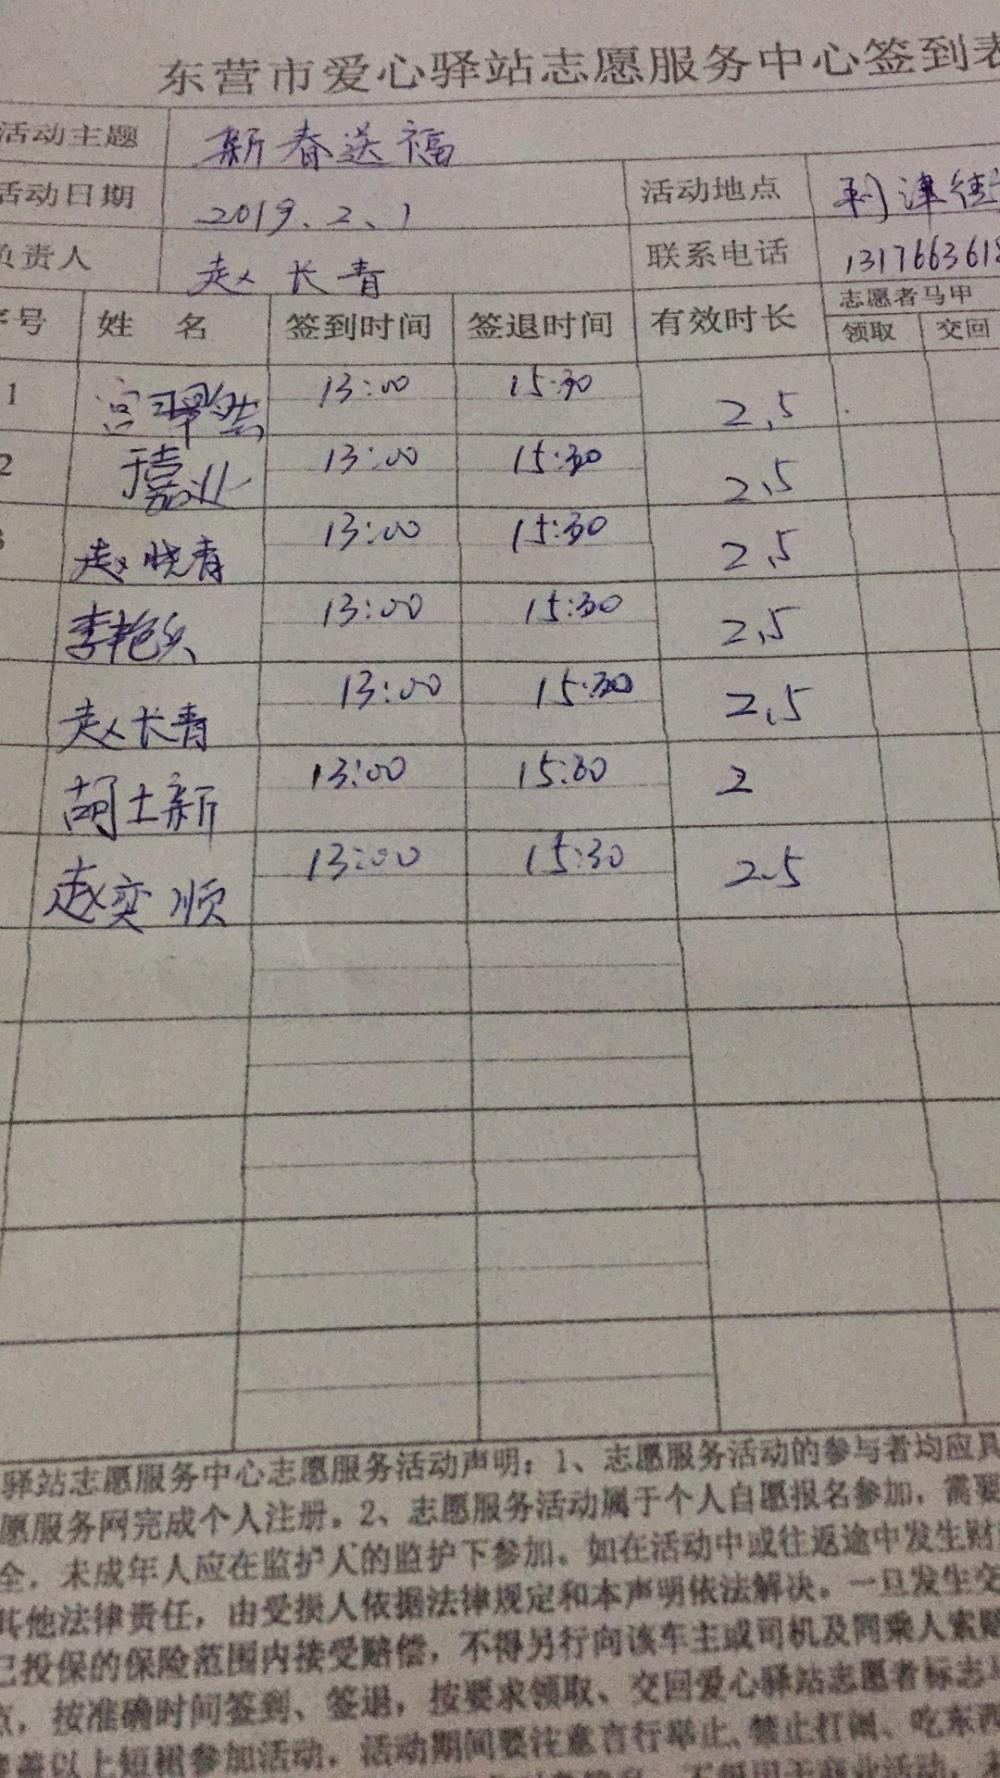 东营市爱心驿站志愿服务中心签到表
活动主题 新春送福
活动日期 2019.2.1 活动地点 利津街
负责人 赵长青 联系电话 131766361
序号 姓 名 签到时间 签退时间 有效时长 志愿者马甲
领取 交回
1 13:00 15:30 2.5
2 于嘉业 13:00 15:30 2.5
3 赵晓青 13:00 15:30 2.5
13:00 15:30 2.5
赵长青 13:00 15:30 2.5
胡士新 13:00 15:30 2
赵奕顺 13:00 15:30 2.5
驿站志愿服务中心志愿服务活动声明：1、志愿服务活动的参与者均应具
愿服务网完成个人注册。2、志愿服务活动属于个人自愿报名参加，需要
全，未成年人应在监护人的监护下参加。如在活动中或往返途中发生财
其他法律责任，由受损人依据法律规定和本声明依法解决。一旦发生交
己投保的保险范围内接受赔偿，不得另行向该车主或司机及同乘人索赔
点，按准确时间签到、签退，按要求领取、交回爱心驿站志愿者标志
膝盖以上短裙参加活动，活动期间要注意言行举止、禁止打闹、吃东西
不得用于商业活动，